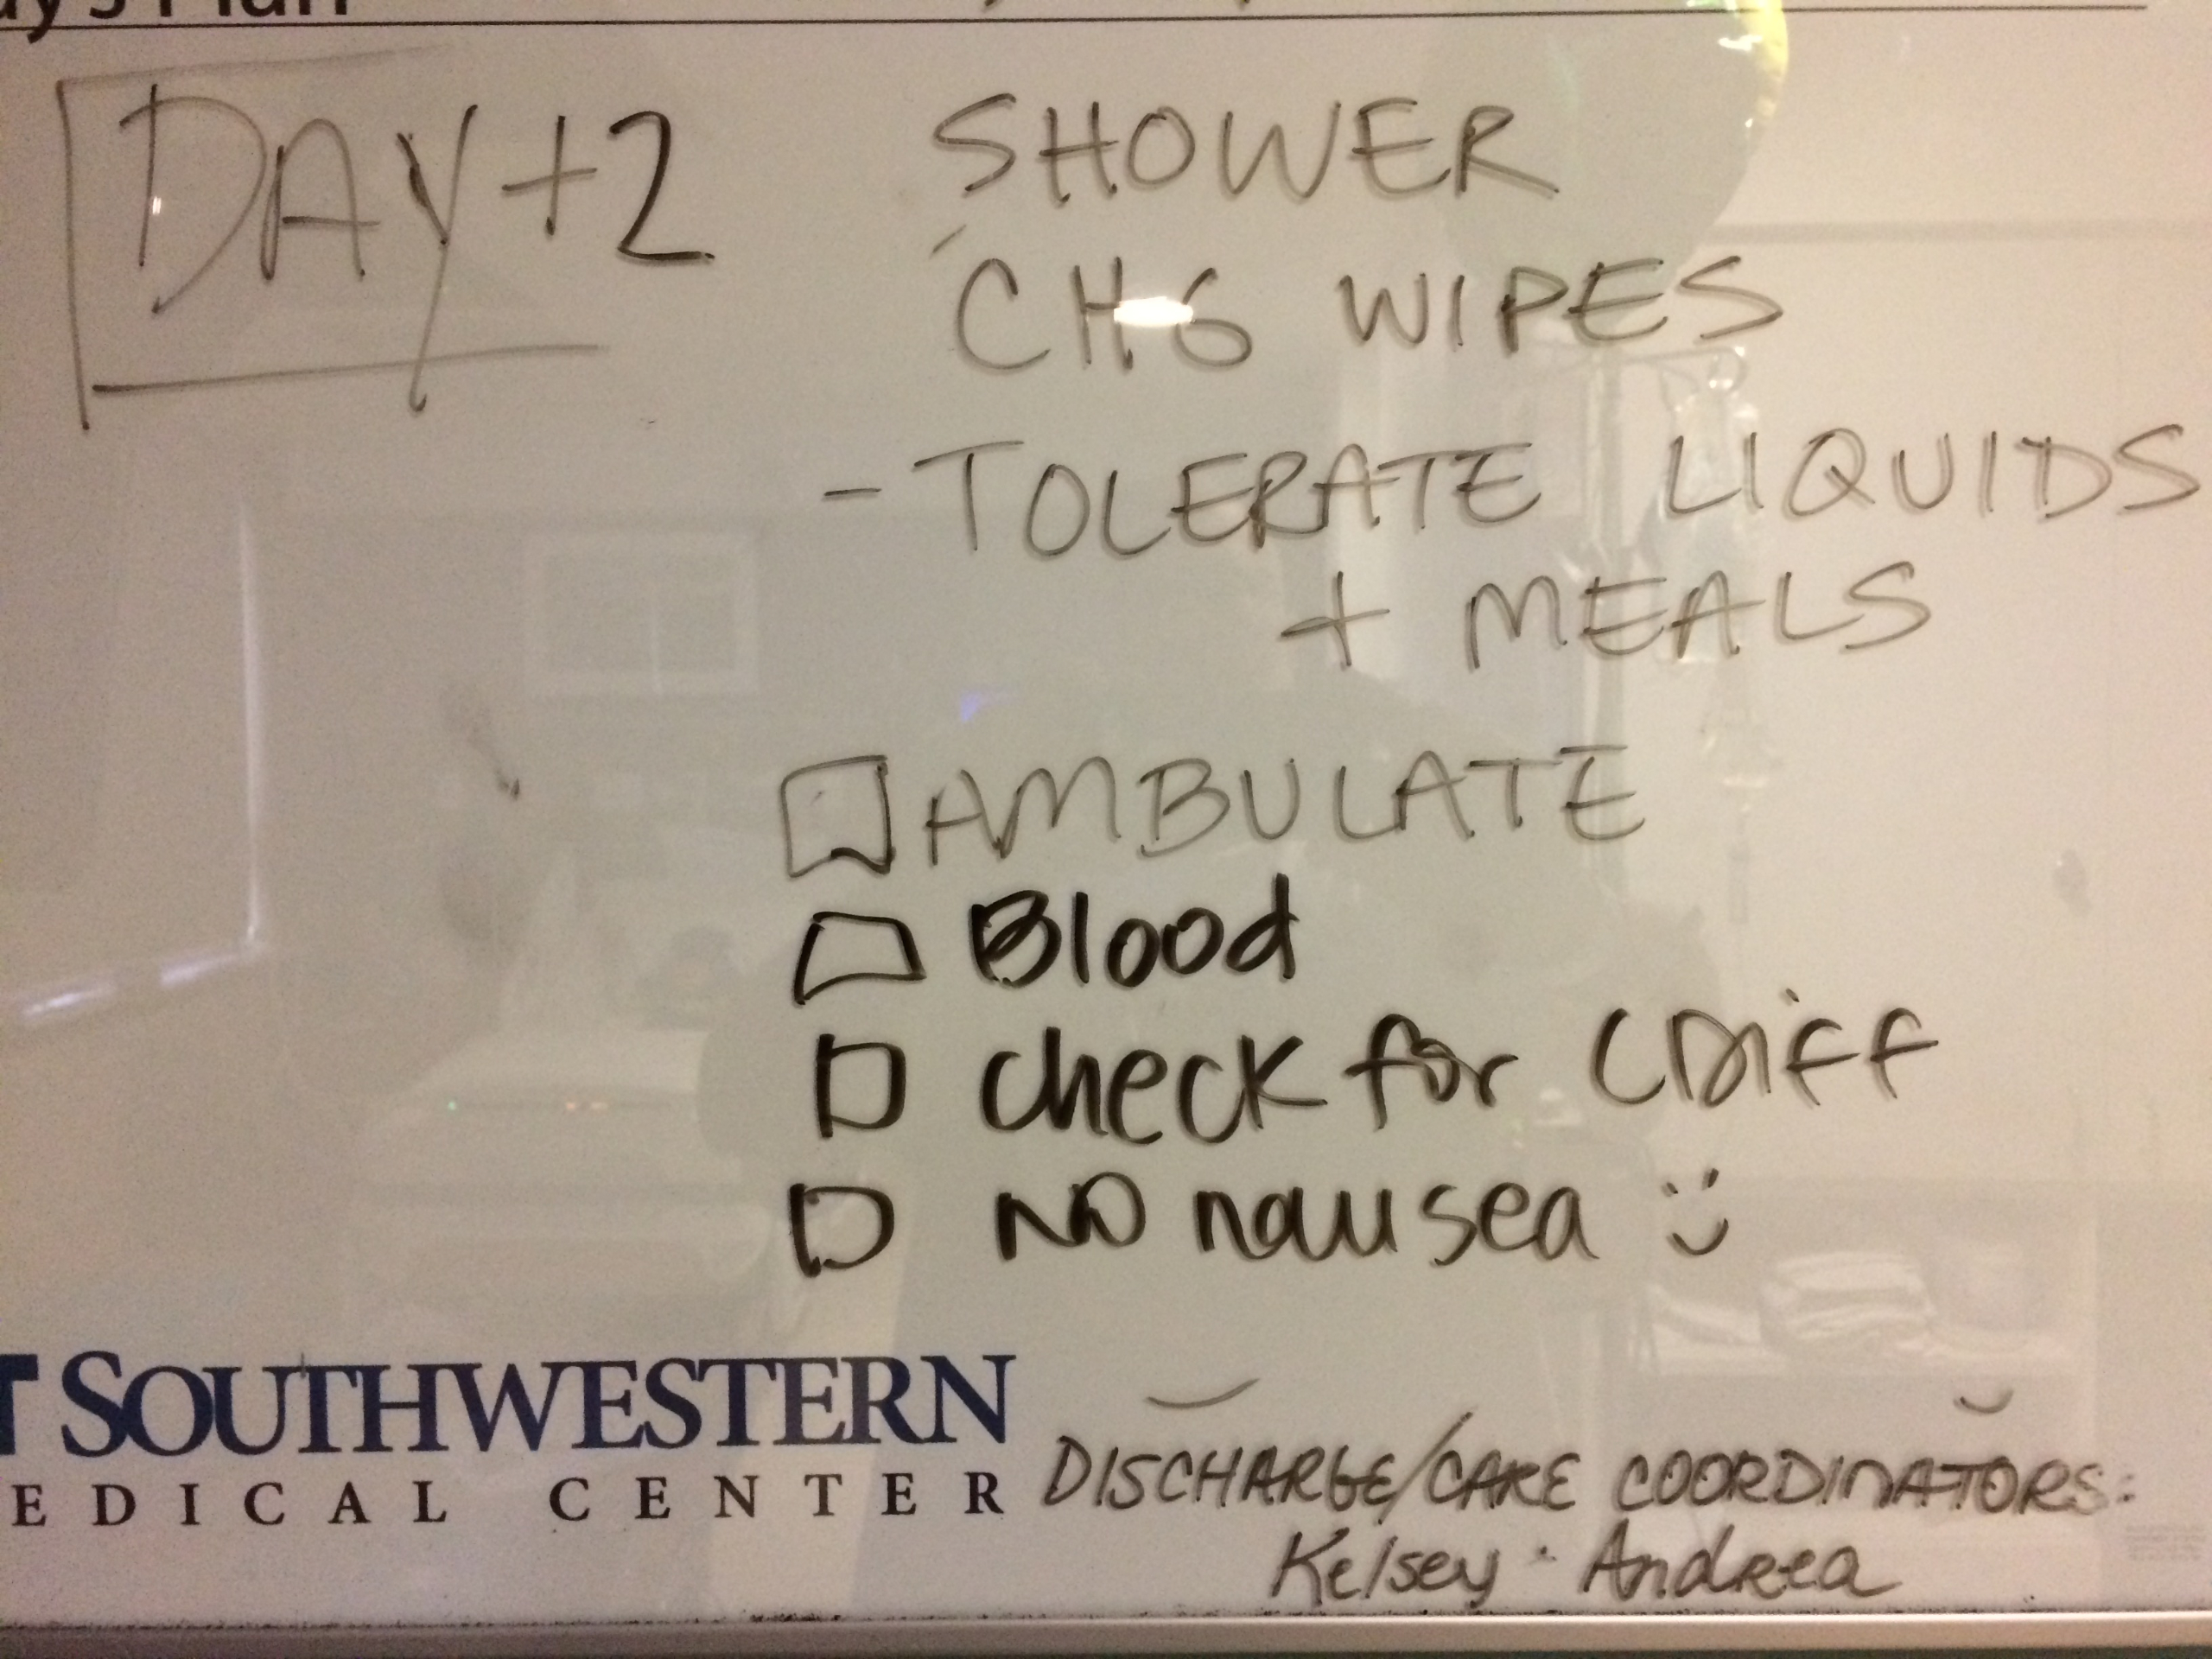 DAY +2
SHOWER
CHG WIPES
- TOLERATE LIQUIDS
+ MEALS
AMBULATE
Blood
check for CDiff
No nausea :)
SOUTHWESTERN
EDICAL CENTER
DISCHARGE/CARE COORDINATORS:
Kelsey · Andrea